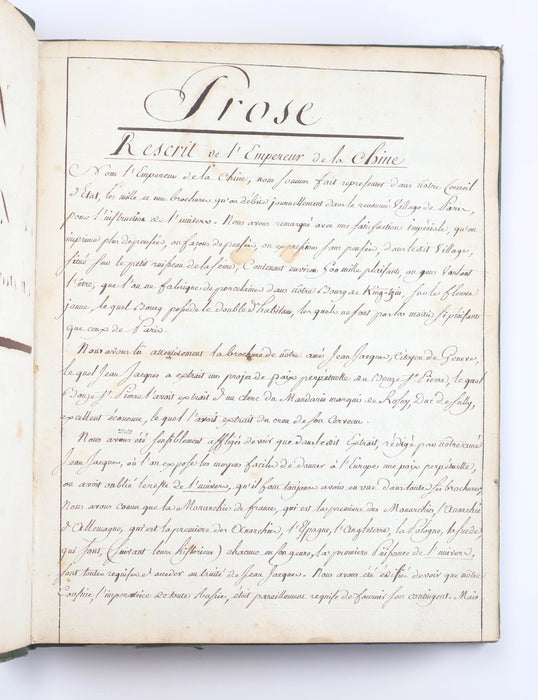 Prose
Rescrit de l'Empereur de la Chine
Nous l'Empereur de la Chine, nous sommes fait representer dans nôtre Conseil
d'Etat, les mille et une brochures qu'on débite journellement dans le renommé Village de Paris,
pour l'instruction de l'univers. Nous avons remarqué avec une satisfaction impériale, qu'on
imprime plus de pensées, ou façons de penser, ou expressions sans pensée, dans ledit Village,
situé sur le petit ruisseau de la Seine, Contenant environ 500 mille plaisants, ou gens voulant
l'être, que l'on ne fabrique de porcelaine dans nôtre Bourg de King-tzin, sur le fleuve
jaune, lequel Bourg possede le double d'habitans, lesquels ne sont pas la moitié si plaisants
que ceux de Paris.
Nous avons lu attentivement la brochure de nôtre amé Jean Jacques, Citoyen de Geneve,
lequel Jean Jacques a extrait un projet de paix perpétuelle du Bonze St. Pierre, lequel
Bonze St. Pierre l'avoit extrait d'un clerc du Mandarin marquis de Rosny, Duc de Sully,
excellent économe, lequel l'avoit extrait du creu de son Cerveau.
Nous avons été sensiblement affligés de voir que dans ledit Extrait, rédigé par nôtre amé
Jean Jacques, où l'on expose les moyens faciles de donner à l'Europe une paix perpétuelle,
on avoit oublié le reste de l'univers, qu'il faut toujours avoir en vue dans toutes ses brochures,
Nous avons connu que la Monarchie de france, qui est la premiere des Monarchies, l'Anarchie
d'Allemagne, qui est la premiere des Anarchies, l'Espagne, l'Angleterre, la Pologne, la Suede,
qui sont, (suivant leurs historiens) chacune en son genre, la premiere Puissance de l'univers,
sont toutes requises d'acceder au traité de Jean Jacques. Nous avons été édifiés de voir que nôtre
Cousine, l'imperatrice de toute Russie, étoit pareillement requise de fournir son contingent. Mais